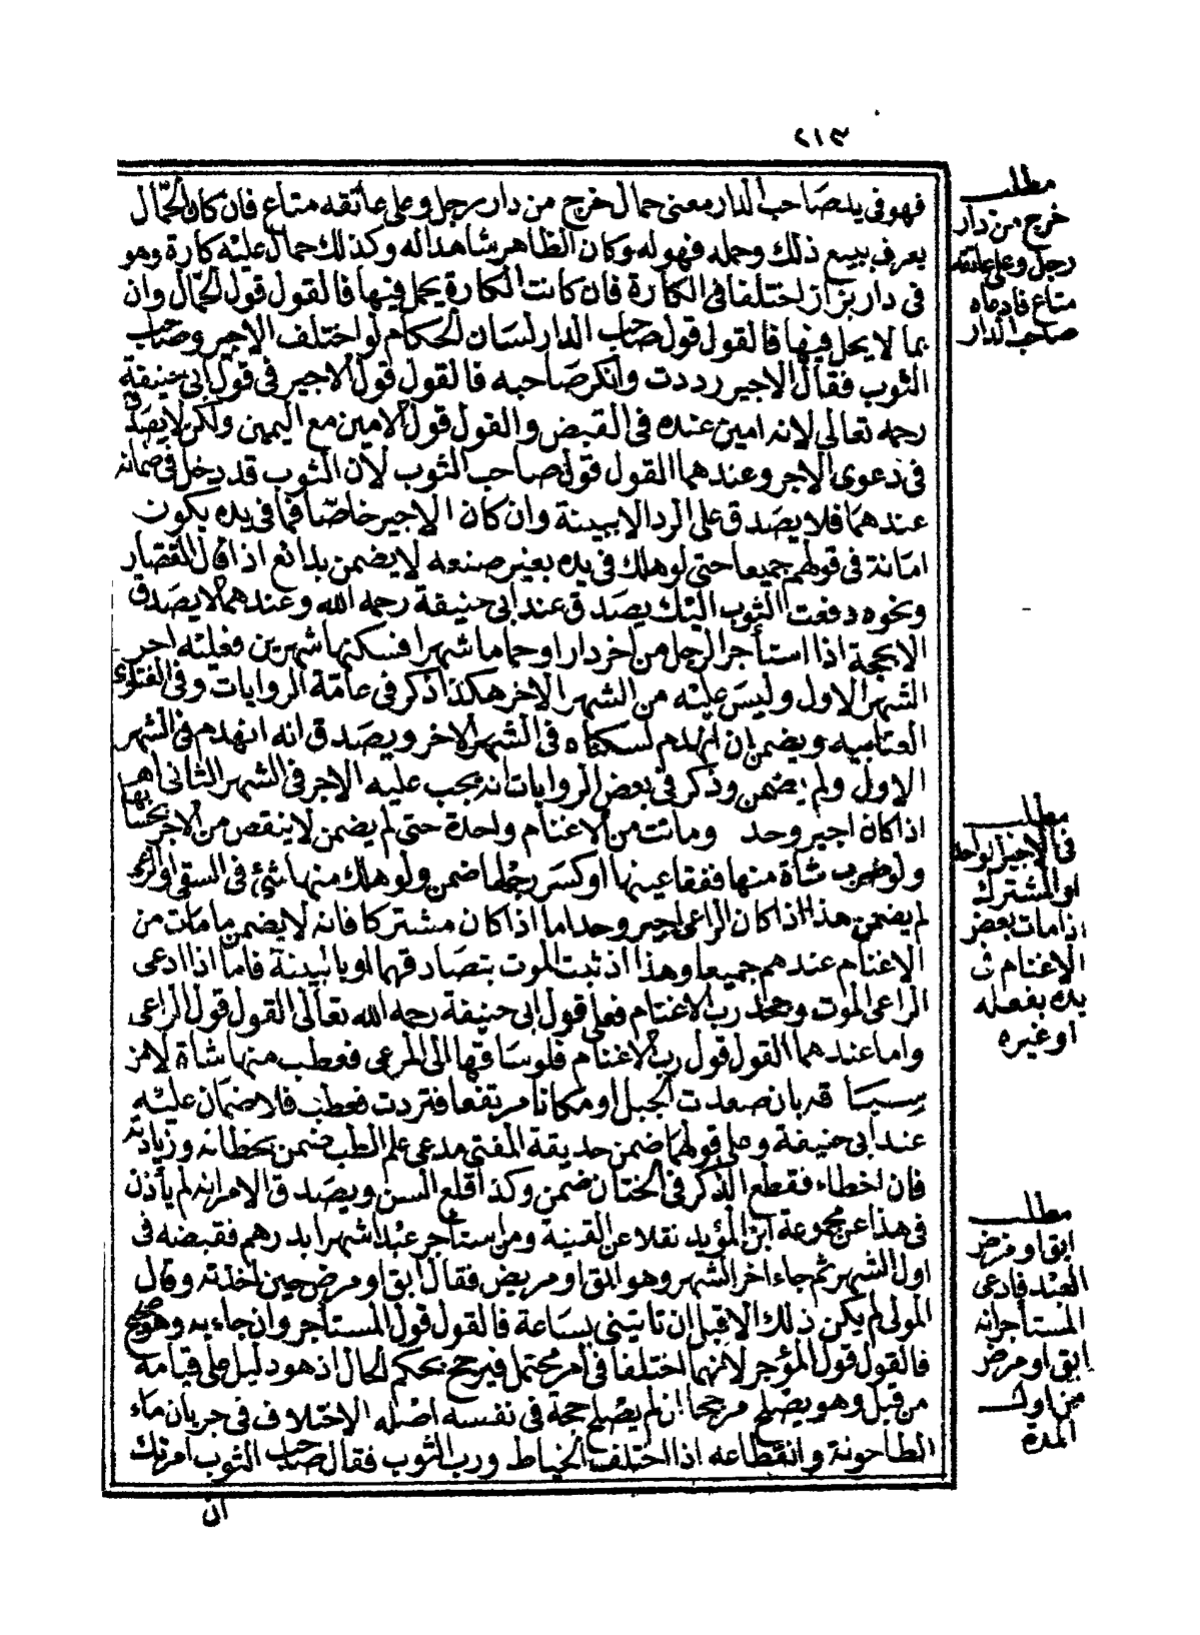 ٢١٣
فهو فى يد صاحب الدار معنى حمال خرج من دار رجل وعلى عاتقه متاع فان كان الحمّال
يعرف ببيع ذلك وحمله فهو له وكان الظاهر شاهدا له وكذلك حمال عليه كارة وهو
فى دار بزاز اختلفا فى الكارة فان كانت الكارة يحمل فيها فالقول قول الحمّال وان
بما لا يحمل فيها فالقول قول صاحب الدار لسان الحكام لو اختلف الاجير وصاحب
الثوب فقال الاجير رددت وانكر صاحبه فالقول قول الاجير فى قول ابى حنيفة
رحمه تعالى لانه امين عنده فى القبض والقول قول الامين مع اليمين ولكن لا يصدق
فى دعوى الاجر وعندهما القول قول صاحب الثوب لان الثوب قد دخل فى ضمانه
عندهما فلا يصدق على الرد الا ببينة وان كان الاجير خاصّا فما فى يده يكون
امانة فى قولهم جميعا حتى لو هلك فى يده بغير صنعه لا يضمن بدائع اذا قال القصار
ونحوه دفعت الثوب اليك يصدق عند ابى حنيفة رحمه الله وعندهما لا يصدق
الا بحجة اذا استأجر الرجل من اخر دارا وحماما شهرا فسكنها شهرين فعليه اجر
الشهر الاول وليس عليه من الشهر الاخر هكذا ذكر فى عامّة الروايات وفى الفتاوى
العتابيه ويضمن ان انهدم لسكناه فى الشهر الاخر ويصدق انه انهدم فى الشهر
الاول ولم يضمن وذكر فى بعض الروايات انه يجب عليه الاجر فى الشهر الثانى اهـ
اذا كان اجير وحد وماتت من الاغنام واحدة حتى لم يضمن لا ينقص من الاجر بحسابها
ولو ضرب شاة منها ففقا عينها او كسر رجلها ضمن ولو هلك منها شئ فى السقى او الرعى
لم يضمن هذا اذا كان الراعى اجير وحد اما اذا كان مشتركا فانه لا يضمن ما مات من
الاغنام عندهم جميعا وهذا اذ ثبت الموت بتصادقهما او بالبينة فاما اذا ادعى
الراعى الموت وجحد رب الاغنام فعلى قول ابى حنيفة رحمه الله تعالى القول قول الراعى
واما عندهما القول قول رب الاغنام فلو ساقها الى المرعى فعطب منها شاة لا من
سياقه بان صعدت الجبل او مكانا مرتفعا فتردت فعطب فلا ضمان عليه
عند ابى حنيفة وعلى قولهما ضمن حديقة المفتى مدعى علم الطب ضمن بخطائه وزيادته
فان اخطاء فقطع الذكر فى الختان ضمن وكذا قلع السن ويصدق الامر انه لم يأذن
فى هذا عن مجموعة ابن المؤيد نقلا عن القنية ومن استأجر عبدا شهرا بدرهم فقبضه فى
اول الشهر ثم جاء اخر الشهر وهو ابق او مريض فقال ابق او مرض حين اخذته وقال
المولى لم يكن ذلك الا قبل ان تاتينى بساعة فالقول قول المستأجر وان جاء به وهو صحيح
فالقول قول المؤجر لانهما اختلفا فى امر محتمل فيرجح بحكم الحال اذ هو دليل على قيامه
من قبل وهو يصلح مرجحا ان لم يصلح حجة فى نفسه اصله الاختلاف فى جريان ماء
الطاحونة وانقطاعه اذا اختلف الخياط ورب الثوب فقال صاحب الثوب امرتك
ان
مطلب
خرج من دار
رجل وعلى عاتقه
متاع فادعاه
صاحب الدار
مطلب
فى الاجير الواحد
او المشترك
اذا مات بعض
الاغنام فى
يده بفعله
او غيره
مطلب
ابق او مرض
العبد فادعى
المستأجر انه
ابق او مرض
من اول
المدة